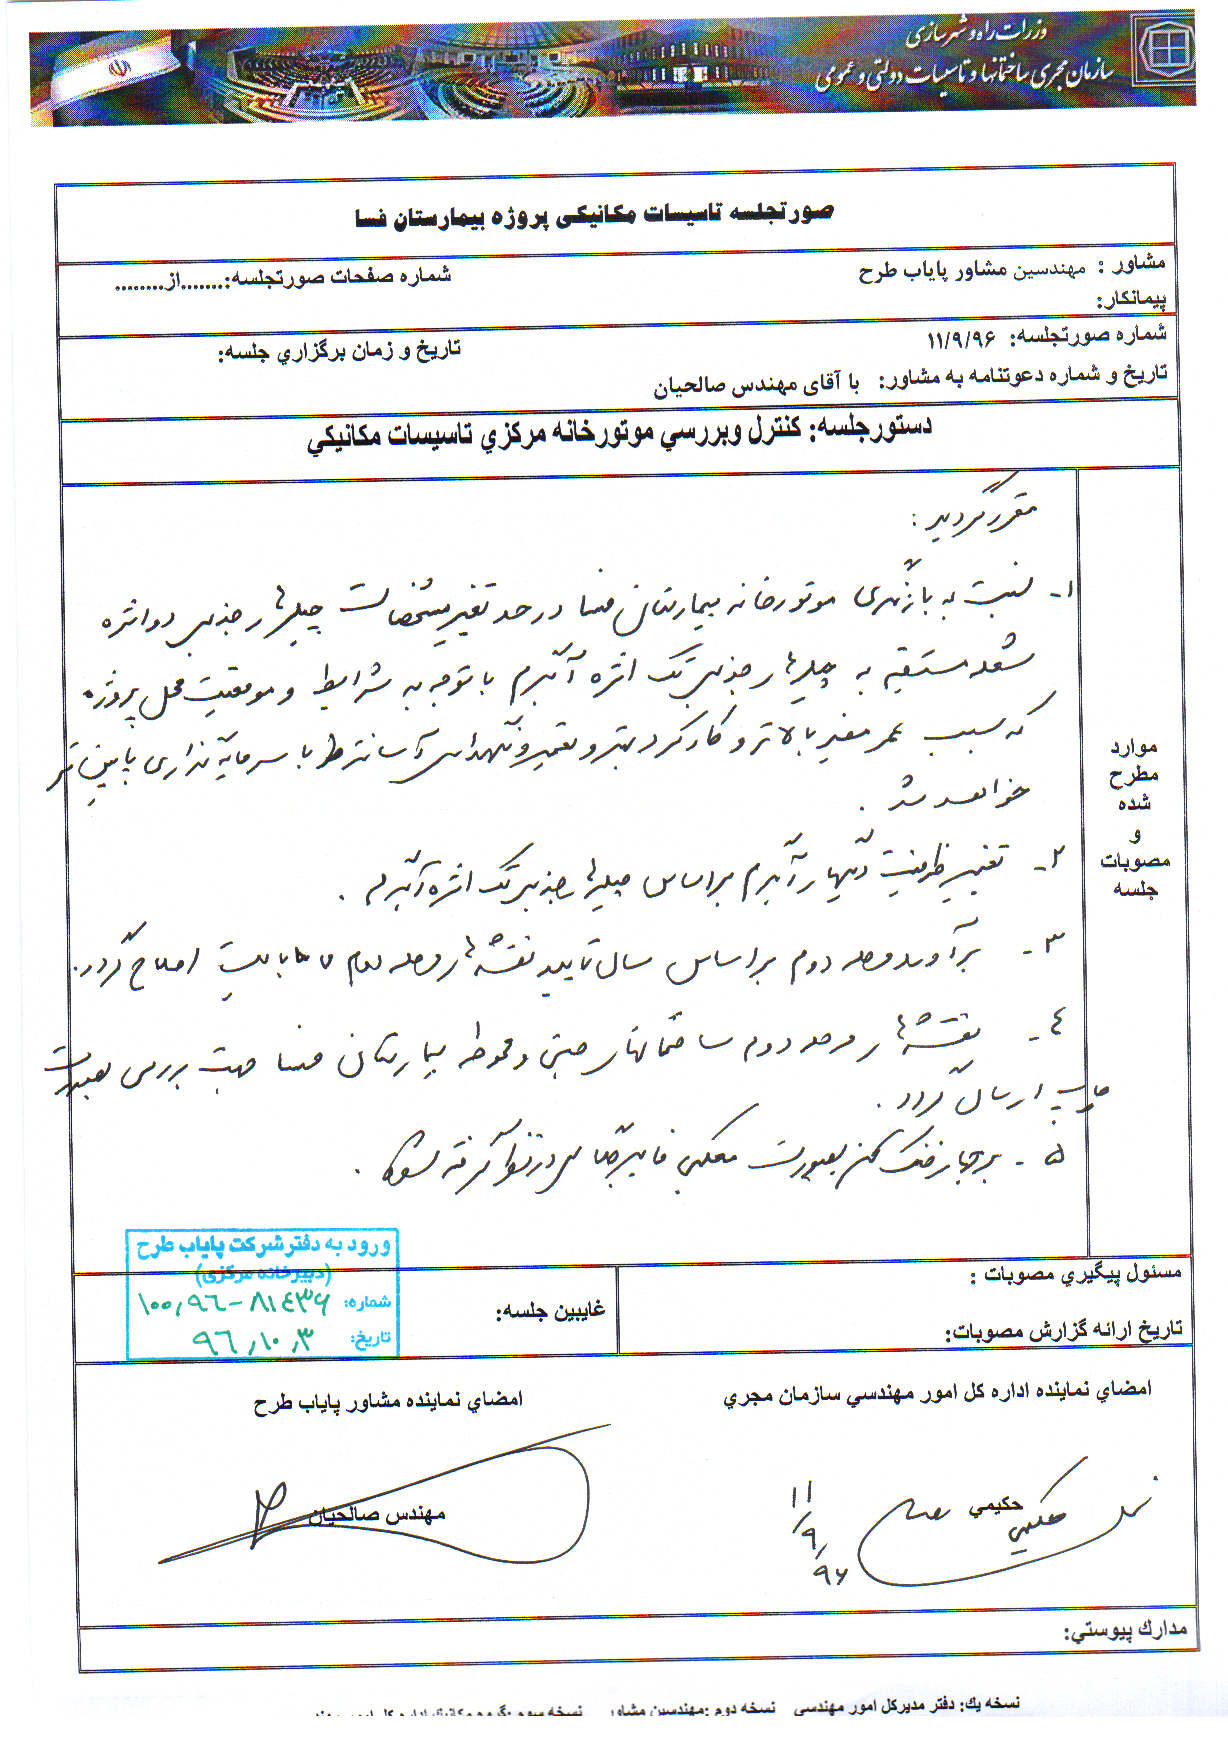 وزارت راه و شهرسازی
سازمان مجری ساختمانها و تاسیسات دولتی و عمومی
صورتجلسه تاسیسات مکانیکی پروژه بیمارستان فسا
مشاور : مهندسین مشاور پایاب طرح
شماره صفحات صورتجلسه:.......از........
پیمانکار:
شماره صورتجلسه: ۱۱/۹/۹۶
تاریخ و زمان برگزاري جلسه:
تاریخ و شماره دعوتنامه به مشاور: با آقای مهندس صالحیان
دستورجلسه: کنترل وبررسي موتورخانه مرکزي تاسیسات مکانیکي
موارد
مطرح
شده
و
مصوبات
جلسه
مقرر گردید :
۱- نسبت به بازنگری موتورخانه بیمارستان فسا در حد تغییر مشخصات چیلرهای جذبی دو اثره
شعله مستقیم به چیلرهای جذبی تک اثره آبگرم با توجه به شرایط و موقعیت محل پروژه
که سبب عمر مفید بالاتر و کارکرد بهتر و تعمیر و نگهداری آسانتر با سرمایه گذاری پایین تر
خواهد شد .
۲- تغییر ظرفیت دیگهای آبگرم براساس چیلرهای جذبی تک اثره آبگرم .
۳- برآورد مرحله دوم براساس سال تایید نقشه های مرحله دوم می بایست اصلاح گردد.
٤- نقشه های مرحله دوم ساختمانهای جنبی و محوطه بیمارستان فسا جهت بررسی بصورت
چاپی ارسال گردد .
۵- برجهای خنک کن بصورت مکعبی فایبرگلاس در نظر گرفته شود .
ورود به دفتر شرکت پایاب طرح
(دبیرخانه مرکزی)
شماره: ۱۰۰٫۹۶-۸۱٤۳۶
تاریخ: ۹۶٫۱۰٫۳
مسئول پیگیري مصوبات :
غایبین جلسه:
تاریخ ارائه گزارش مصوبات:
امضاي نماینده اداره کل امور مهندسي سازمان مجري
امضاي نماینده مشاور پایاب طرح
حکیمي
حکیمی
۱۱/۹/۹۶
مهندس صالحیان
مدارك پیوستي:
نسخه یك: دفتر مدیرکل امور مهندسی نسخه دوم :مهندسین مشاور نسخه سوم :گروه مکانیك اداره کل امور